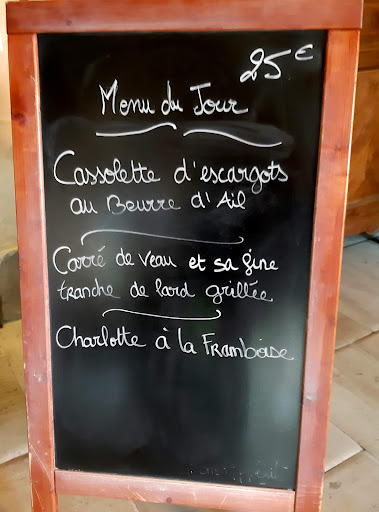 25 €
Menu du Jour
Cassolette d'escargots
au Beurre d'Ail
Carré de veau et sa fine
tranche de lard grillée
Charlotte à la Framboise